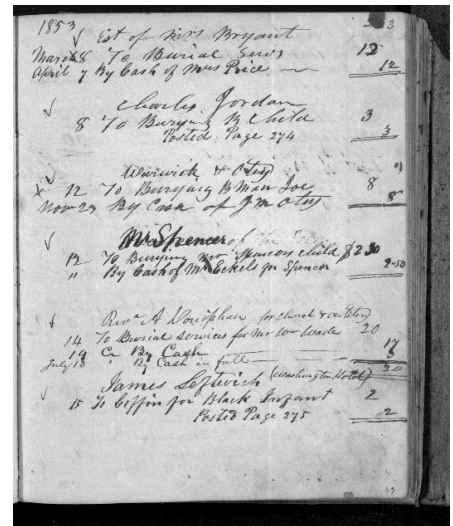 1853
Est of Mrs Bryant
March 8 To Burial Servs 12
April 7 By Cash of Mrs Price 12
Charles Jordan
8 To Burying B Child 3
Posted Page 274 3
Warwick & Otey
12 To Burying B Man Joe 8
Nov 23 By Cash of J M Otey 8
Mr Spencer of
12 To Burying Mr Spencers child $2 50
" By Cash of Mr Eckels for Spencer 2-50
Revd A Doniphan for church
14 To Burial services for Mr Wm Wade 20
19 Cr By Cash 17
July 13 " By Cash in full 3
20
James Leftwich (Washington Hotel)
15 To Coffin for Black Infant 2
Posted Page 275 2